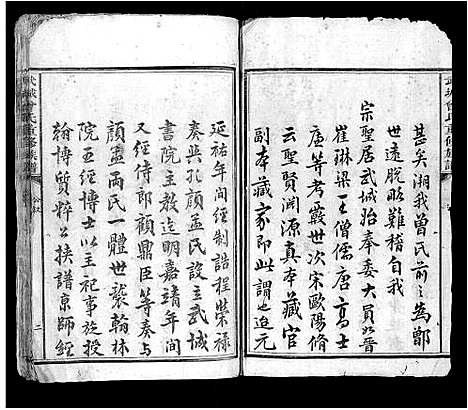 武城曾氏重修族譜
甚矣湘我曾氏前之為鄫
世遠脫略難稽自我
宗聖居武城始奉委大員如晉
崔琳梁王僧儒唐高士
廉等考覈世次宋歐陽脩
云聖賢淵源真本藏官
副本藏家即此謂也迨元
延祐年間經制誥程榮祿
奏與孔顏孟氏設主武城
宗主教迄明嘉靖年間
又經侍郎顧鼎臣等奏与
顏孟兩氏一體世襲翰林
院五經博士以主祀事旋授
翰博質粹公挾譜京師經
武城曾氏重修族譜
公叙
二